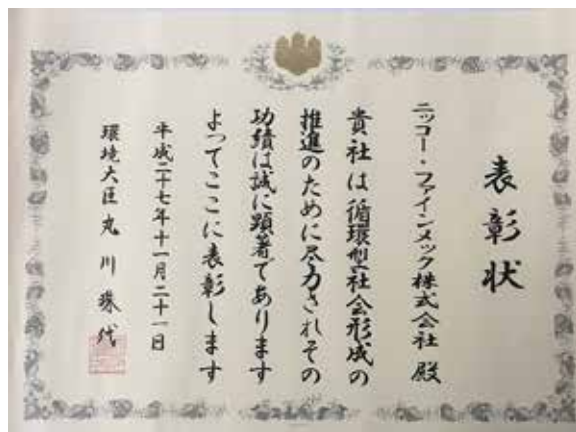 表彰状
ニッコー・ファインメック株式会社 殿
貴社は循環型社会形成の
推進のために尽力されその
功績は誠に顕著であります
よってここに表彰します
平成二十七年十一月二十一日
環境大臣 丸川珠代